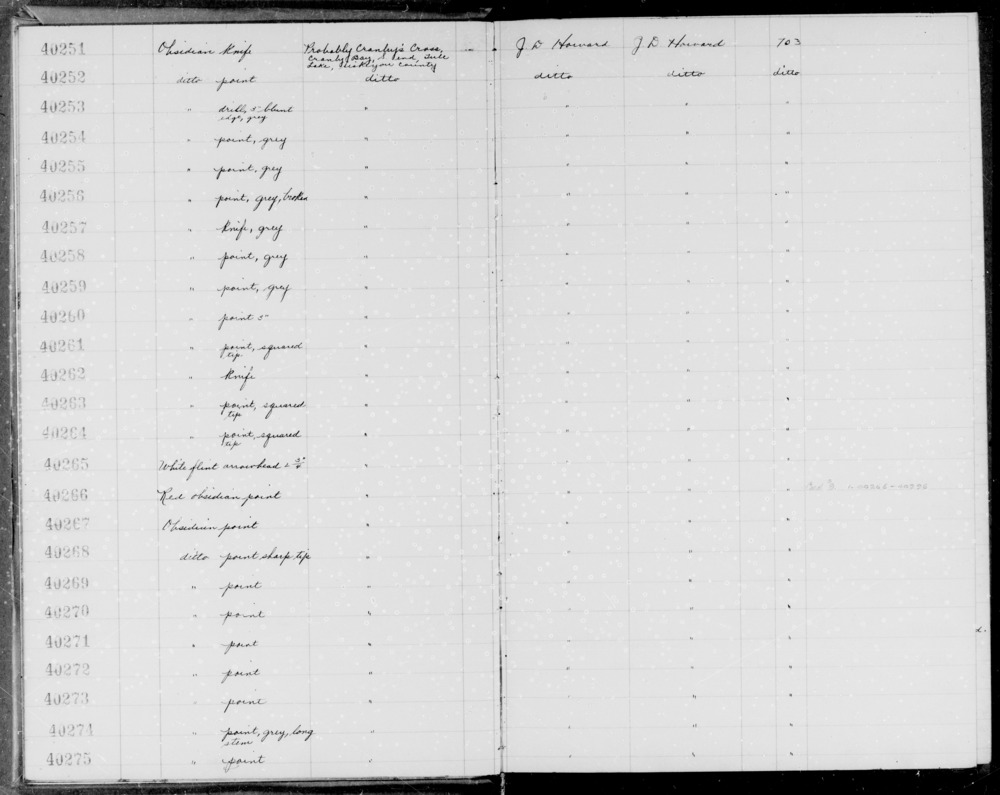 40251 Obsidian knife Probably Cranby's Cross, J D Howard J D Howard 703
Cranby Bay, S end, Tule
Lake, Siskiyou County
40252 ditto point ditto ditto ditto ditto
40253 " drill, 5" blunt " " " "
edge, grey
40254 " point, grey " " " "
40255 " point, grey " " " "
40256 " point, grey, broken " " " "
40257 " knife, grey " " " "
40258 " point, grey " " " "
40259 " point, grey " " " "
40260 " point 5" " " " "
40261 " point, squared " " " "
tip
40262 " knife " " " "
40263 " point, squared " " " "
tip
40264 " point, squared " " " "
tip
40265 White flint arrowhead " " " "
40266 Red obsidian point " " " "
40267 Obsidian point " " " "
40268 ditto point sharp tip " " " "
40269 " point " " " "
40270 " point " " " "
40271 " point " " " "
40272 " point " " " "
40273 " point " " " "
40274 " point, grey, long " " " "
stem
40275 " point " " " "